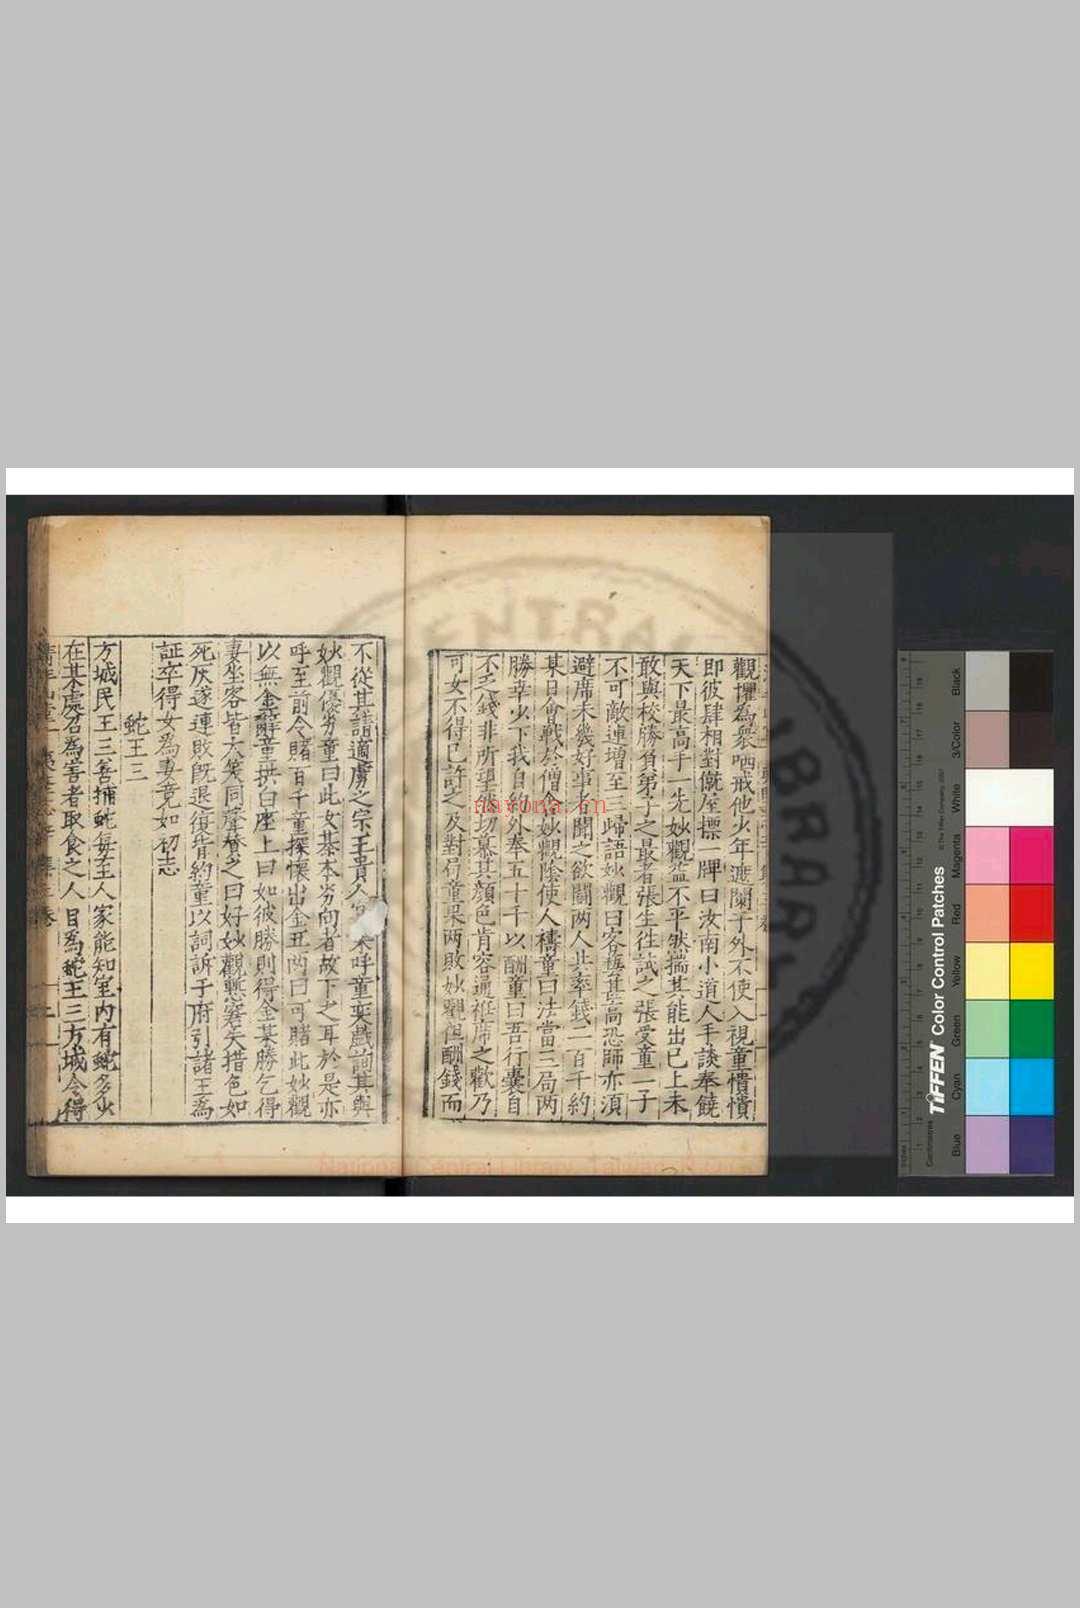 觀懼為衆哂戒他少年遮闌于外不使入視童憤憤
即彼肆相對僦屋標一牌曰汝南小道人手談奉饒
天下最高手一先妙觀益不平然揣其能出已上未
敢與校勝負弟子之最者張生往試之張受童一子
不可敵連增至三歸語妙觀曰客藝甚高恐師亦須
避席未幾好事者聞之欲鬪两人共率錢二百千約
某日會戰於僧舍妙觀陰使人禱童曰法當三局两
勝幸少下我自約外奉五十千以酬童曰吾行囊自
不乏錢非所望然切慕其顔色肯容通袵席之歡乃
可女不得已許之及對局童果两敗妙觀但酬錢而
不從其請適虜之宗王貴人 來呼童奕戲詢其與
妙觀優劣童曰此女棊本劣向者故下之耳於是亦
呼至前令賭百千童探懷出金五两曰可賭此妙觀
以無金辭童拱白座上曰如彼勝則得金某勝乞得
妻坐客皆大笑同聲賛之曰好妙觀慙窘失措色如
死灰遂連敗既退復背約童以詞訴于府引諸王為
証卒得女為妻竟如初志
蛇王三
方城民王三善捕蛇每至人家能知室内有蛇多少
在某處召為害者取食之人目為蛇王三方城令得
navona.cn
National Central Library, Taiwan
LIBRARY
TIFFEN Color Control Patches
© The Tiffen Company, 2007
Centimetres
Inches
Blue
Cyan
Green
Yellow
Red
Magenta
White
3/Color
Black